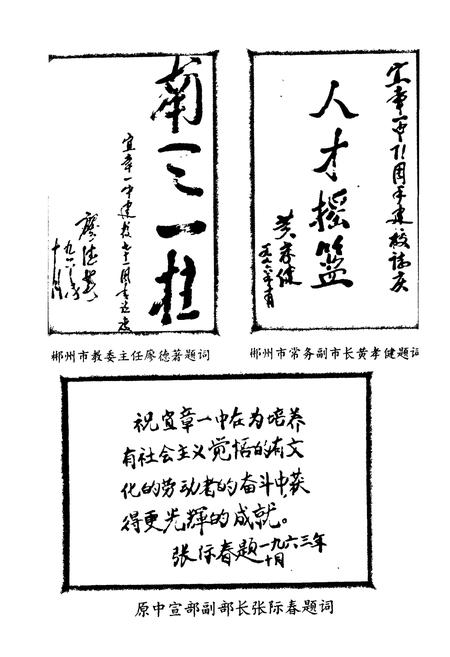 南天一柱
宜章一中建校七十一周年志庆
廖德著
十月
郴州市教委主任廖德著题词
宜章一中71周年建校志庆
人才摇篮
黄孝健
郴州市常务副市长黄孝健题词
祝宜章一中在为培养
有社会主义觉悟的有文
化的劳动者的奋斗中,获
得更光辉的成就。
张际春题一九六三年
十月
原中宣部副部长张际春题词